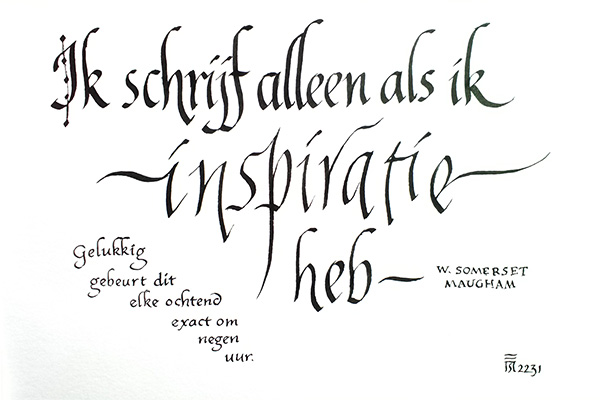 Ik schrijf alleen als ik
inspiratie
heb
W. SOMERSET
MAUGHAM
Gelukkig
gebeurt dit
elke ochtend
exact om
negen
uur.
2231